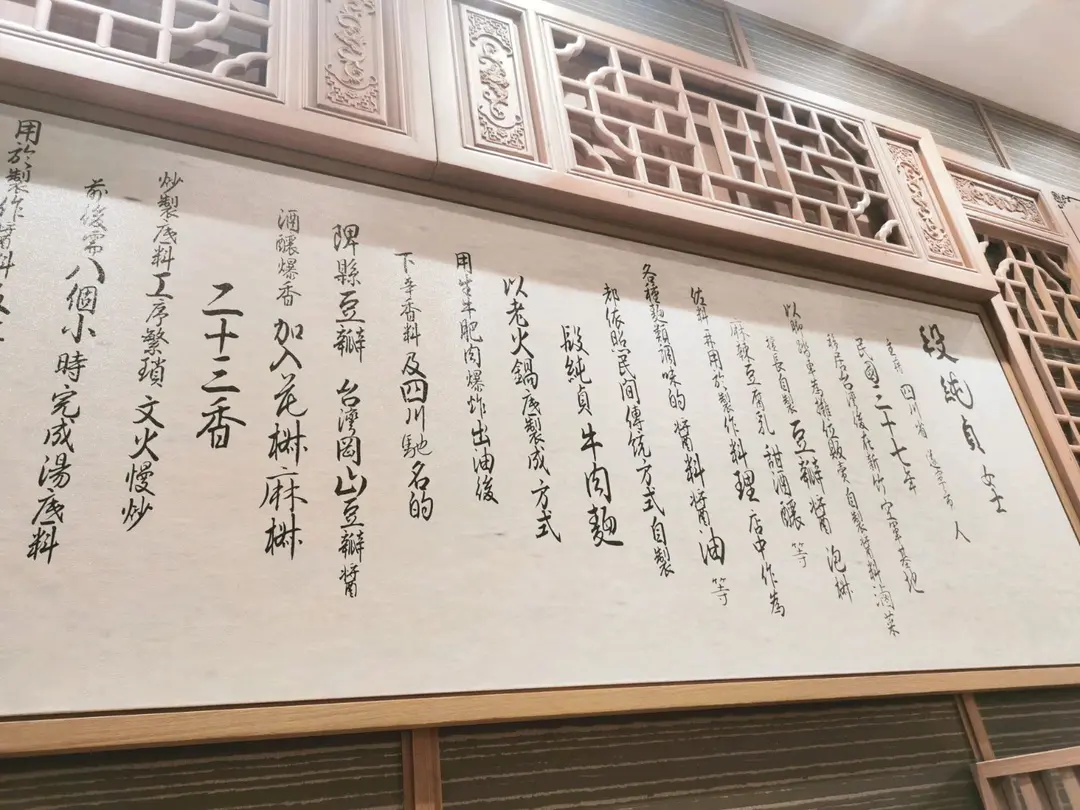 段純貞 女士
生於 四川省 遂寧市 人
民國三十七年
移居台灣後在新竹空軍基地
以腳踏車為攤位販賣自製醬料滷菜
擅長自製 豆瓣醬 泡椒
麻辣豆腐乳 甜酒釀 等
佐料并用於製作料理 店中作為
各種麵類調味的 醬料醬油 等
都依照民間傳統方式自製
段純貞牛肉麵
以老火鍋底製成方式
用生牛肥肉爆炸出油後
下辛香料及四川馳名的
郫縣豆瓣 台灣岡山豆瓣醬
酒釀爆香 加入花椒麻椒
二十三香
炒製底料工序繁瑣 文火慢炒
前後需八個小時完成湯底料
用於製作醬料